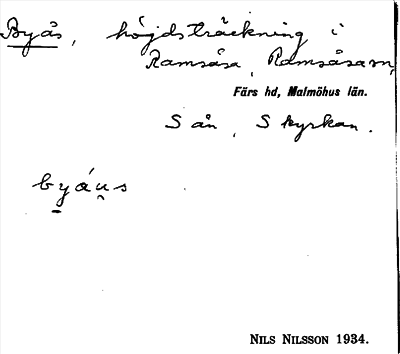 Byås, höjdsträckning i
Ramsåsa, Ramsåsa sn,
Färs hd, Malmöhus län.
S ån, S kyrkan.
byáu̯s
NILS NILSSON 1934.